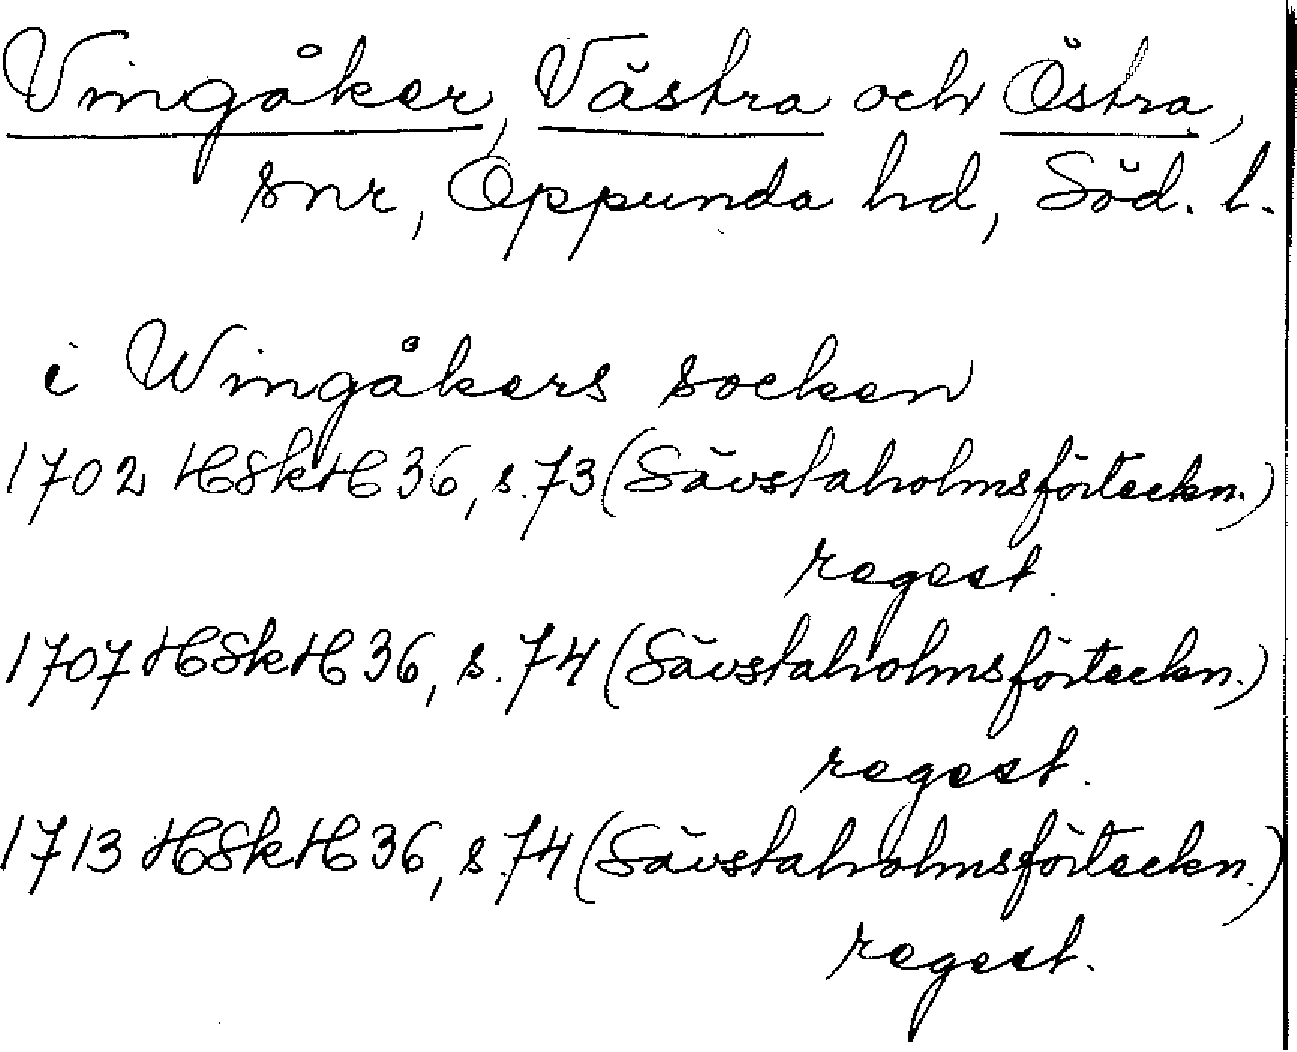 Vingåker, Västra och Östra,
snr, Oppunda hd, Söd. l.
i Wingåkers socken
1702 HSkH 36, s. 73 (Sävstaholmsförteckn.)
regest.
1707 HSkH 36, s. 74 (Sävstaholmsförteckn.)
regest.
1713 HSkH 36, s. 74 (Sävstaholmsförteckn.)
regest.